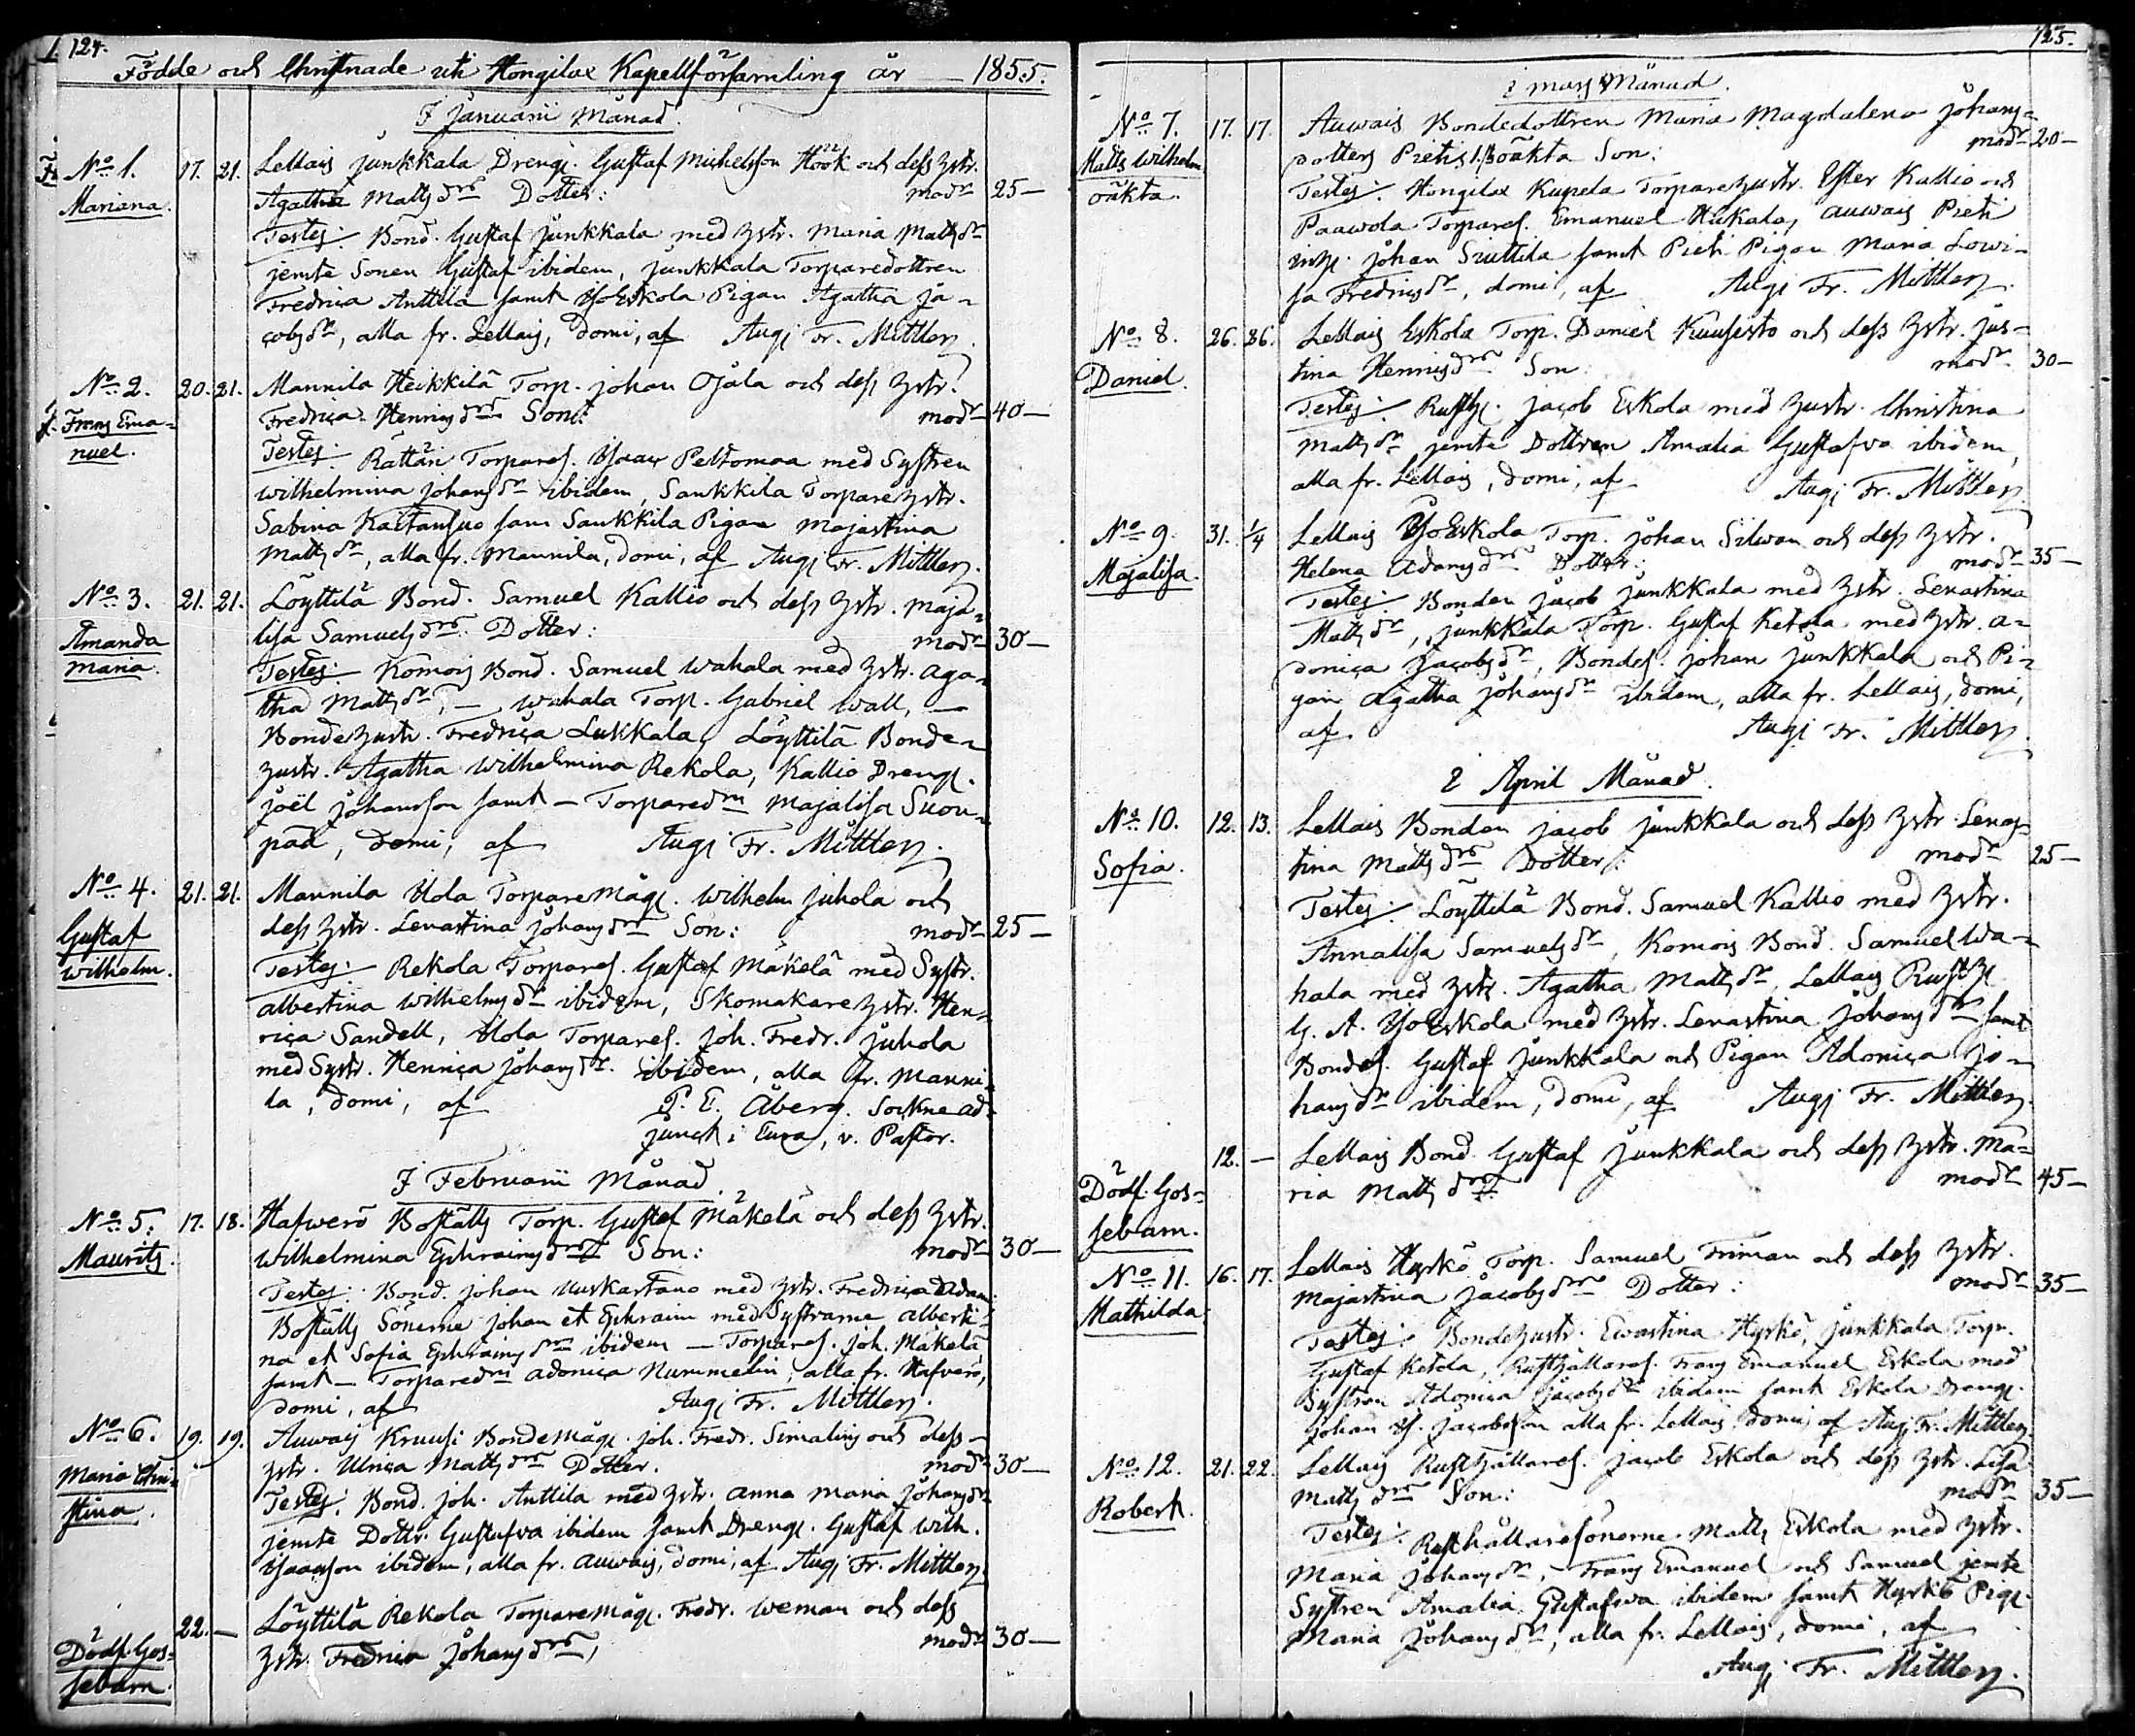 124.
Födde och Christnade uti Hongilax Kapellförsamling år 1855.
I Januarii Månad.
No 1. 17. 21. Lellais Junkkala Drengs. Gustaf Michelsson Höök och dess hstr.
Mariana. Agatha Matts drs Dotter: modr 25 —
Testes: Bond. Gustaf Junkkala med hstr. Maria Matts dr
jemte Sonen Gustaf ibidem, Junkkala Torparedottren
Fredrica Anttila samt YsoEskola Pigan Agatha Ja-
cobs dr, alla fr. Lellais, domi, af Aug. Fr. Mittler.
No 2. 20. 21. Mannila Heikkilä Torp. Johan Ojala och dess hstr.
Frans Ema- Fredrica Henrics drs Son: modr 40 —
nuel. Testes: Rättäri Torpares. Isaac Peltomaa med Systren
Wilhelmina Johans dr ibidem, Sankkila Torpare hstr.
Sabina Kaitansuo sam Sankkila Pigan Majastina
Matts dr, alla fr. Mannila, domi, af Aug. Fr. Mittler.
No 3. 21. 21. Löyttilä Bond. Samuel Kallio och dess hstr. Maja-
Amanda lisa Samuels drs Dotter: modr 30 —
Maria. Testes: Komois Bond. Samuel Wahala med hstr. Aga-
tha Matts dr, — Wahala Torp. Gabriel Wall, —
Bondehustr. Fredrica Lukkala, Löyttilä Bonde-
hustr. Agatha Wilhelmina Rekola, Kallio Drengs.
Joël Johansson samt — Torparedrn Majalisa Suon-
pää, domi, af Aug. Fr. Mittler.
No 4. 21. 21. Mannila Ylola Torparemågs. Wilhelm Juhola och
Gustaf dess hstr. Lenastina Johans drs Son: modr 25 —
Wilhelm. Testes: Rekola Torpares. Gustaf Mäkelä med Systr.
Albertina Wilhelms dr ibidem, Skomakare hstr. Hen-
rica Sandell, Ylola Torpares. Joh. Fredr. Juhola
med Systr. Henrica Johans dr. ibidem, alla fr. Manni-
la, domi, af P. E. Åberg. Sockne ad-
junct i Eura, v. Pastor.
I Februarii Månad.
No 5. 17. 18. Hafwerö Boställs Torp. Gustaf Mäkelä och dess hstr.
Maurits. Wilhelmina Ephraims drs Son: modr 30 —
Testes: Bond. Johan Uuskartano med hstr. Fredrica Adams
Boställs Sönerne Johan et Ephraim med Systrarne Alberti-
na et Sofia Ephraims drar ibidem — Torpares. Joh. Mäkelä
samt — Torparedrn Adonica Nummelin, alla fr. Hafverö,
domi, af Aug. Fr. Mittler.
No 6. 19. 19. Auwais Kruusi Bondemågs. Joh. Fredr. Simalins och dess
Maria Chri- hstr. Ulrica Matts drs Dotter. modr 30 —
stina. Testes: Bond. Joh. Anttila med hstr. Anna Maria Johans dr
jemte Dottr. Gustafva ibidem samt Drengs. Gustaf Wilh.
Isaacson ibidem, alla fr. Auwais, domi, af Aug. Fr. Mittler.
22. — Löyttilä Rekola Torparemågs. Fredr. Weman och dess
Dödf. Gos- hstr. Fredrica Johans drs, modr 30 —
sebarn.
125.
i Mars Månad.
No 7. 17. 17. Auwais Bondedottren Maria Magdalena Johans-
Matts Wilhelm dotters Pietis oäkta Son: modr 20 —
oäkta. Testes: Hongilax Kapela Torparehustr. Ester Kallio och
Paawola Torpares. Emanuel Hukala, Auwais Pieti
inhs. Johan Siuttila samt Pieti Pigan Maria Lowi-
sa Fredrics dr, domi, af Aug. Fr. Mittler.
No 8. 26. 26. Lellais Eskola Torp. Daniel Kuusisto och dess hstr. Jus-
Daniel. tina Henrics drs Son: modr 30 —
Testes: Rusth. Jacob Eskola med hustr. Christina
Matts dr jemte Dottren Amalia Gustafva ibidem,
alla fr. Lellais, domi, af Aug. Fr. Mittler.
No 9. 31. 1/4 Lellais YsoEskola Torp. Johan Silwan och dess hstr.
Majalisa. Helena Adams drs Dotter: modr 35 —
Testes: Bonden Jacob Junkkala med hstr. Lenastina
Matts dr, Junkkala Torp. Gustaf Ketola med hstr. A-
donica Jacobs dr, Bondes. Johan Junkkala och Pi-
gan Agatha Johans dr ibidem, alla fr. Lellais, domi,
af Aug. Fr. Mittler.
i April Månad.
No 10. 12. 13. Lellais Bonden Jacob Junkkala och dess hstr Lenas-
Sofia. tina Matts drs Dotter: modr 25 —
Testes: Löyttilä Bond. Samuel Kallio med hstr.
Annalisa Samuels dr, Komois Bond. Samuel Wa-
hala med hstr. Agatha Matts dr, Lellais Rusth.
G. A. YsoEskola med hstr. Lenastina Johans dr samt
Bondes. Gustaf Junkkala och Pigan Adonica Jo-
hans dr ibidem, domi, af Aug. Fr. Mittler.
12. — Lellais Bond. Gustaf Junkkala och dess hstr. Ma-
Dödf. Gos- ria Matts drs modr 45 —
sebarn.
No 11. 16. 17. Lellais Hyrkö Torp. Samuel Friman och dess hstr.
Mathilda. Majastina Jacobs drs Dotter: modr 35 —
Testes: Bondehustr. Ewastina Hyrkö, Junkkala Torp.
Gustaf Ketola, Rusthållares. Frans Emanuel Eskola med
Systren Adonica Jacobs dr ibidem samt Eskola Drengs.
Johan Jacobsson alla fr. Lellais, domi, af Aug. Fr. Mittler.
No 12. 21. 22. Lellais Rusthållares. Jacob Eskola och dess hstr. Lisa
Robert. Matts drs Son: modr 35 —
Testes: Rusthållaresönerne Matts Eskola med hstr.
Maria Johans dr, — Frans Emanuel och Samuel jemte
Systren Amalia Gustafwa ibidem samt Hyrkö Pigs.
Maria Johans dr, alla fr. Lellais, domi, af
Aug. Fr. Mittler.